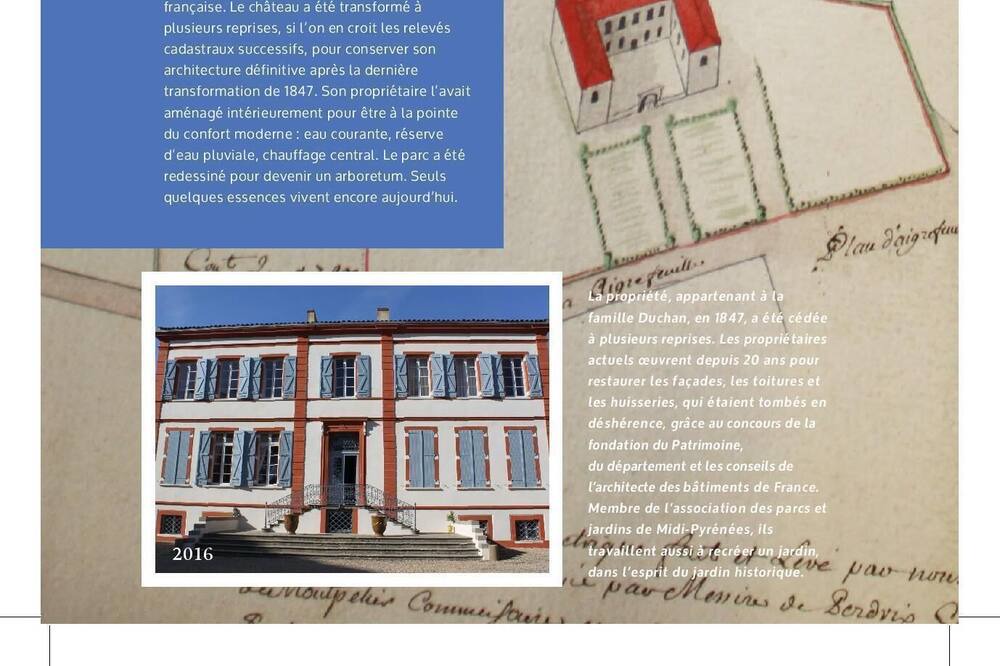 française. Le château a été transformé à
plusieurs reprises, si l'on en croit les relevés
cadastraux successifs, pour conserver son
architecture définitive après la dernière
transformation de 1847. Son propriétaire l'avait
aménagé intérieurement pour être à la pointe
du confort moderne : eau courante, réserve
d'eau pluviale, chauffage central. Le parc a été
redessiné pour devenir un arboretum. Seuls
quelques essences vivent encore aujourd'hui.
Plan d'aigrefeu
Aigrefeuille
La propriété, appartenant à la
famille Duchan, en 1847, a été cédée
à plusieurs reprises. Les propriétaires
actuels œuvrent depuis 20 ans pour
restaurer les façades, les toitures et
les huisseries, qui étaient tombés en
déshérence, grâce au concours de la
fondation du Patrimoine,
du département et les conseils de
l'architecte des bâtiments de France.
Membre de l'association des parcs et
jardins de Midi-Pyrénées, ils
travaillent aussi à recréer un jardin,
dans l'esprit du jardin historique.
2016
et Levé par nous
par Messire de
de Montpelier Commissaire